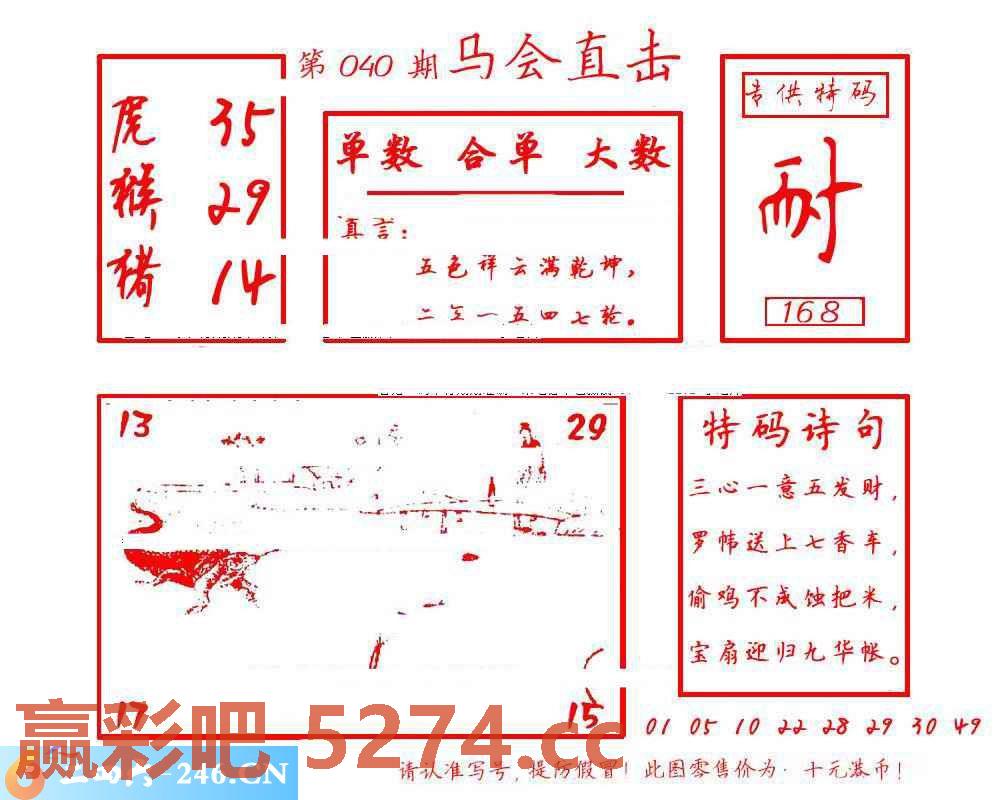 第 040 期 马会直击
虎 35
猴 29
猪 14
单数 合单 大数
真言:
五色祥云满乾坤,
二三一五四七轮。
专供特码
耐
168
13 29
17 15
特码诗句
三心一意五发财,
罗帏送上七香车,
偷鸡不成蚀把米,
宝扇迎归九华帐。
01 05 10 22 28 29 30 49
赢彩吧 5274.cc
-246.CN
请认准写号,提防假冒!此图零售价为·十元港币!